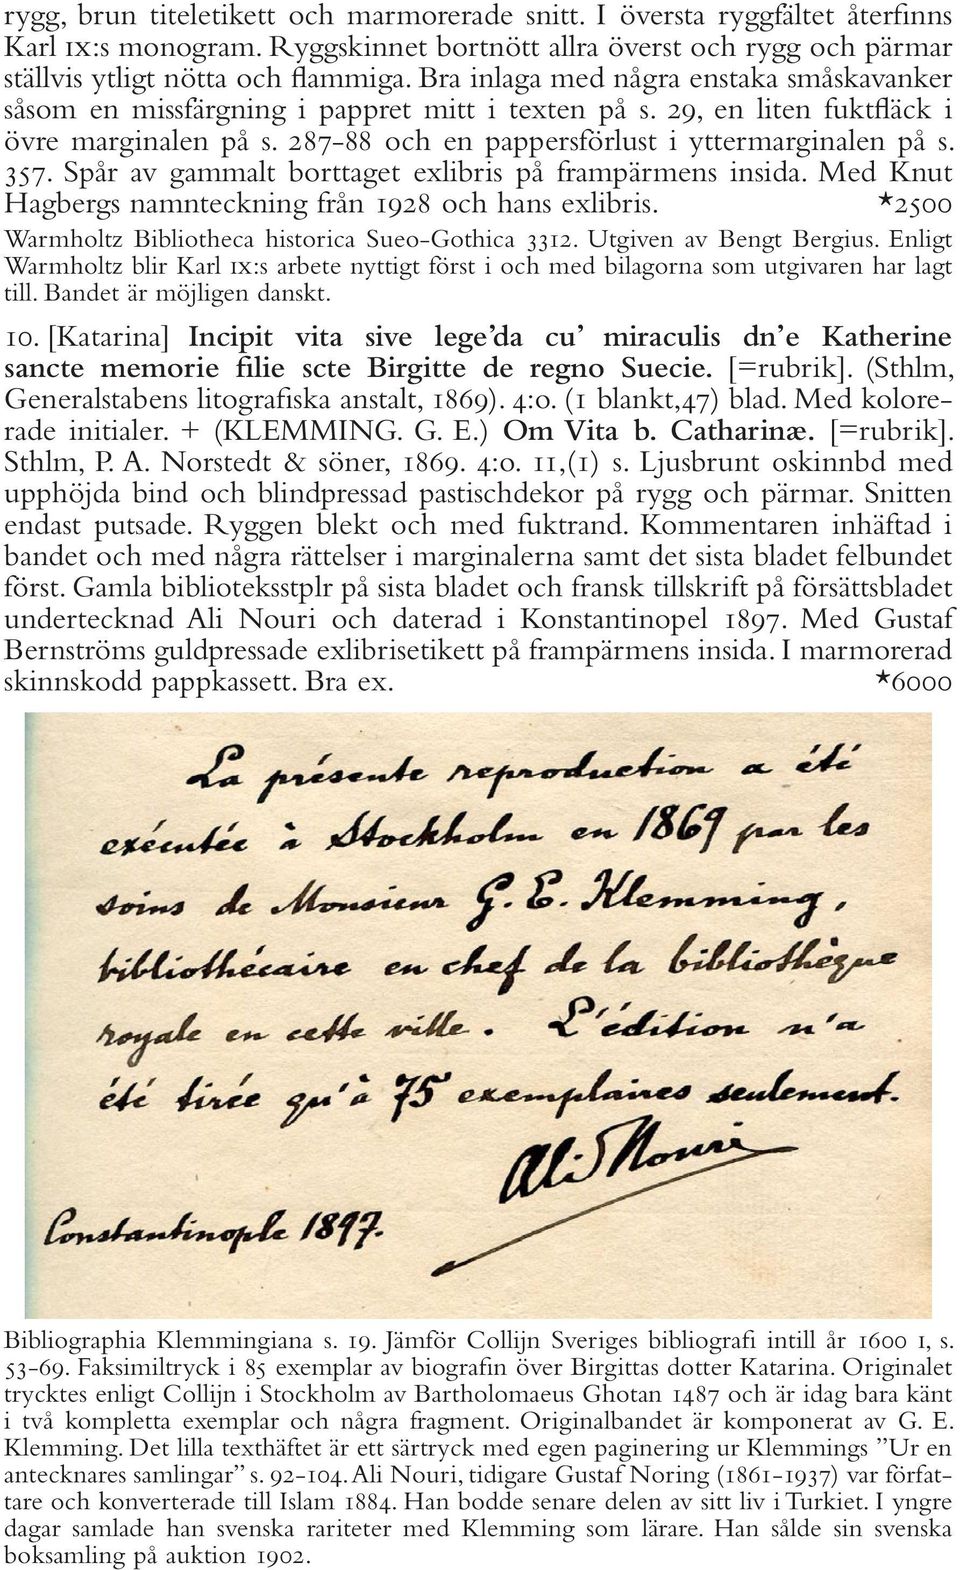 rygg, brun titeletikett och marmorerade snitt. I översta ryggfältet återfinns
Karl IX:s monogram. Ryggskinnet bortnött allra överst och rygg och pärmar
ställvis ytligt nötta och flammiga. Bra inlaga med några enstaka småskavanker
såsom en missfärgning i pappret mitt i texten på s. 29, en liten fuktfläck i
övre marginalen på s. 287-88 och en pappersförlust i yttermarginalen på s.
357. Spår av gammalt borttaget exlibris på frampärmens insida. Med Knut
Hagbergs namnteckning från 1928 och hans exlibris. *2500
Warmholtz Bibliotheca historica Sueo-Gothica 3312. Utgiven av Bengt Bergius. Enligt
Warmholtz blir Karl IX:s arbete nyttigt först i och med bilagorna som utgivaren har lagt
till. Bandet är möjligen danskt.
10. [Katarina] Incipit vita sive lege’da cu’ miraculis dn’e Katherine
sancte memorie filie scte Birgitte de regno Suecie. [=rubrik]. (Sthlm,
Generalstabens litografiska anstalt, 1869). 4:o. (1 blankt,47) blad. Med kolore-
rade initialer. + (KLEMMING. G. E.) Om Vita b. Catharinæ. [=rubrik].
Sthlm, P. A. Norstedt & söner, 1869. 4:o. 11,(1) s. Ljusbrunt oskinnbd med
upphöjda bind och blindpressad pastischdekor på rygg och pärmar. Snitten
endast putsade. Ryggen blekt och med fuktrand. Kommentaren inhäftad i
bandet och med några rättelser i marginalerna samt det sista bladet felbundet
först. Gamla biblioteksstplr på sista bladet och fransk tillskrift på försättsbladet
undertecknad Ali Nouri och daterad i Konstantinopel 1897. Med Gustaf
Bernströms guldpressade exlibrisetikett på frampärmens insida. I marmorerad
skinnskodd pappkassett. Bra ex. *6000
La présente reproduction a été
exécutée à Stockholm en 1869 par les
soins de Monsieur G. E. Klemming,
bibliothécaire en chef de la bibliothèque
royale en cette ville. L'édition n'a
été tirée qu'à 75 exemplaires seulement.
Ali Nouri
Constantinople 1897.
Bibliographia Klemmingiana s. 19. Jämför Collijn Sveriges bibliografi intill år 1600 1, s.
53-69. Faksimiltryck i 85 exemplar av biografin över Birgittas dotter Katarina. Originalet
trycktes enligt Collijn i Stockholm av Bartholomaeus Ghotan 1487 och är idag bara känt
i två kompletta exemplar och några fragment. Originalbandet är komponerat av G. E.
Klemming. Det lilla texthäftet är ett särtryck med egen paginering ur Klemmings ”Ur en
antecknares samlingar” s. 92-104. Ali Nouri, tidigare Gustaf Noring (1861-1937) var förfat-
tare och konverterade till Islam 1884. Han bodde senare delen av sitt liv i Turkiet. I yngre
dagar samlade han svenska rariteter med Klemming som lärare. Han sålde sin svenska
boksamling på auktion 1902.